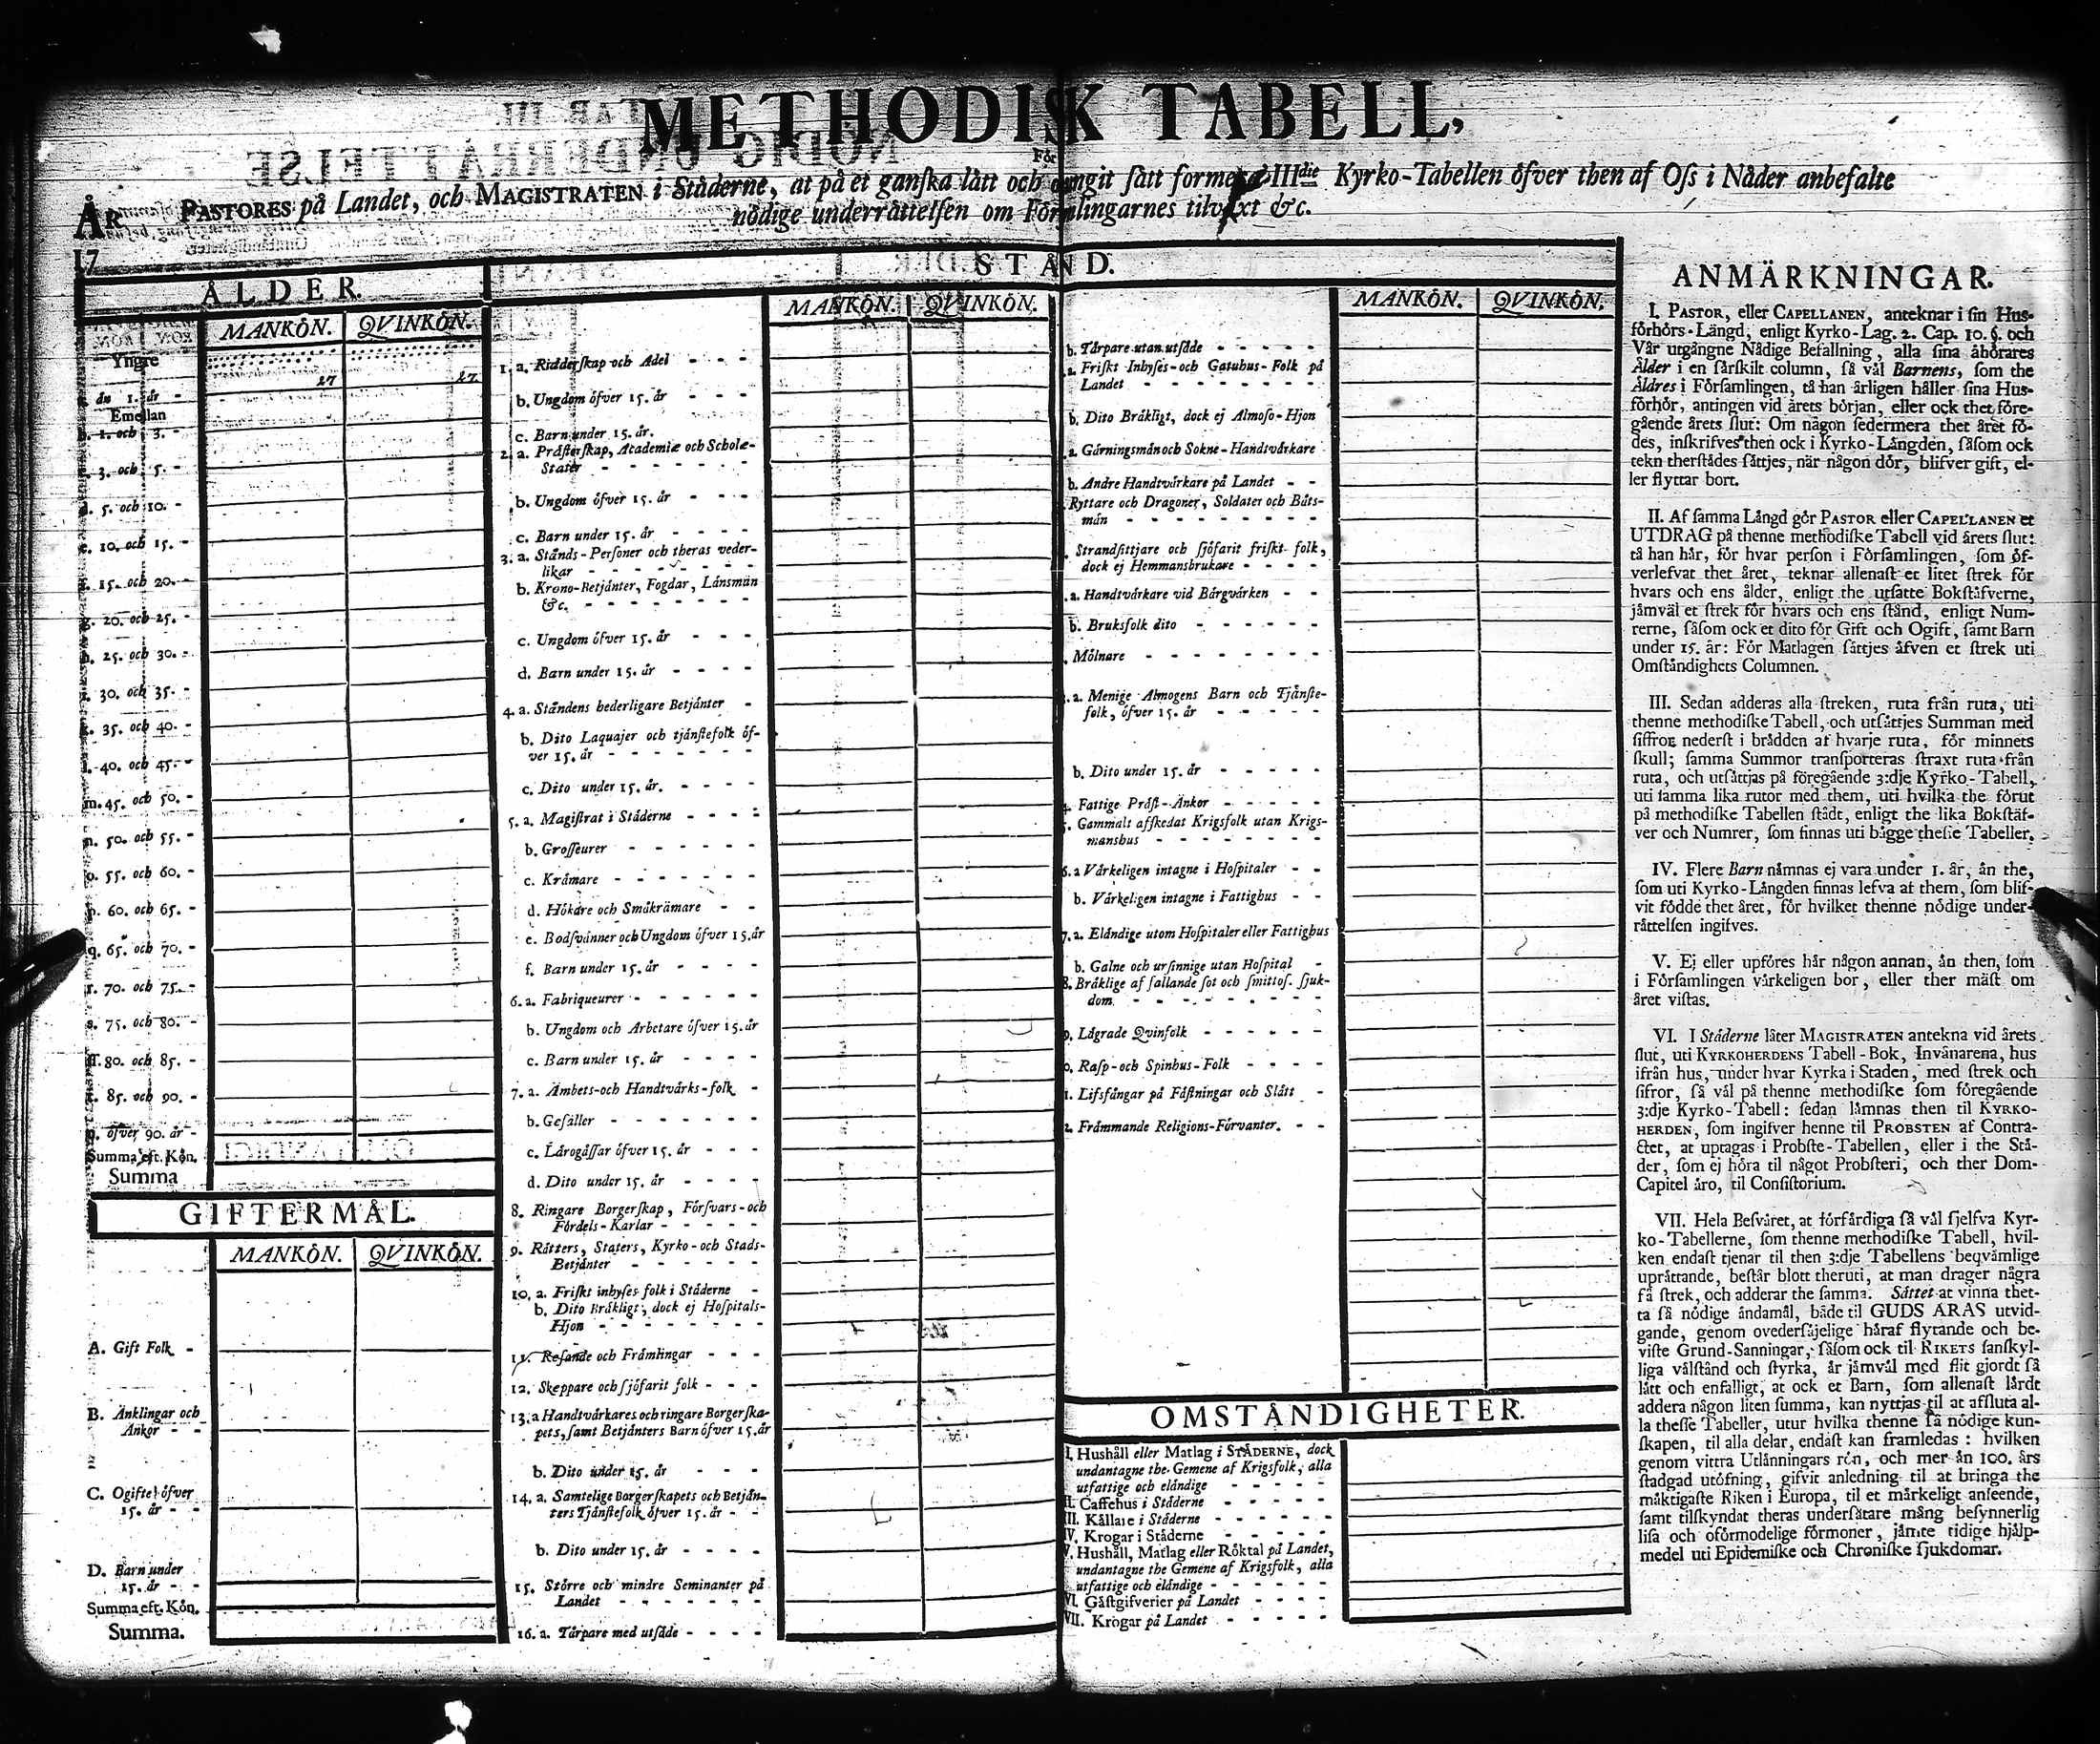 METHODISK TABELL,
För
PASTORES på Landet, och MAGISTRATEN i Städerne, at på et ganſka lått och gångit ſått formera IIIdie Kyrko-Tabellen öfver then af Oſs i Nåder anbefalte
nödige underråttelſen om Förſamlingarnes tilväxt &c.
ÅR
17
ÅLDER.
MANKÖN. QVINKÖN.
Yngre
27 27
än 1. år -
Emellan
b. 1. och 3. -
3. och 5. -
d. 5. och 10. -
e. 10. och 15. -
f. 15. och 20. -
g. 20. och 25. -
h. 25. och 30. -
i. 30. och 35. -
k. 35. och 40. -
l. 40. och 45. -
m. 45. och 50. -
n. 50. och 55. -
o. 55. och 60. -
p. 60. och 65. -
q. 65. och 70. -
r. 70. och 75. -
s. 75. och 80. -
ſſ. 80. och 85. -
t. 85. och 90. -
öfver 90. år -
Summa eft. Kön.
Summa
GIFTERMÅL.
MANKÖN. QVINKÖN.
A. Gift Folk -
B. Änklingar och
Änkor - -
C. Ogifte öfver
15. år - -
D. Barn under
15. år - -
Summa eft. Kön.
Summa.
STÅND.
MANKÖN. QVINKÖN.
1. a. Ridderſkap och Adel - - - -
b. Ungdom öfver 15. år - - - -
c. Barn under 15. år.
2. a. Präſterſkap, Academiæ och Scholæ-
Stater - - - - - - -
b. Ungdom öfver 15. år - - - -
c. Barn under 15. år - - - -
3. a. Stånds-Perſoner och theras veder-
likar - - - - - - - -
b. Krono-Betjänter, Fogdar, Länsmän
&c. - - - - - - - -
c. Ungdom öfver 15. år - - - -
d. Barn under 15. år - - - -
4. a. Ståndens hederligare Betjänter -
b. Dito Laquajer och tjänſtefolk öf-
ver 15. år - - - - - - -
c. Dito under 15. år. - - - -
5. a. Magiſtrat i Städerne - - - -
b. Groſſeurer - - - - - -
c. Krämare - - - - - - -
d. Hökare och Småkrämare - -
e. Bodſvänner och Ungdom öfver 15. år
f. Barn under 15. år - - - -
6. a. Fabriqueurer - - - - - -
b. Ungdom och Arbetare öfver 15. år
c. Barn under 15. år - - - -
7. a. Ämbets-och Handtvärks-folk -
b. Geſäller - - - - - - -
c. Lärogåſſar öfver 15. år - - -
d. Dito under 15. år - - - -
8. Ringare Borgerſkap, Förſvars-och
Fördels-Karlar - - - - -
9. Rätters, Staters, Kyrko-och Stads-
Betjänter - - - - - -
10. a. Friſkt inhyſes folk i Städerne -
b. Dito Bräkligt, dock ej Hoſpitals-
Hjon - - - - - - - -
11. Reſande och Främlingar - - -
12. Skeppare och ſjöfarit folk - - -
13. a Handtvärkares och ringare Borgerſka-
pets, ſamt Betjänters Barn öfver 15. år
b. Dito under 15. år - - -
14. a. Samtelige Borgerſkapets och Betjän-
ters Tjänſtefolk öfver 15. år - -
b. Dito under 15. år - - - -
15. Större och mindre Seminanter på
Landet - - - - - - -
16. a. Tårpare med utſäde - - - -
MANKÖN. QVINKÖN.
b. Tårpare utan utſäde - - - - -
a. Friſkt Inhyſes-och Gatuhus-Folk på
Landet - - - - - - - -
b. Dito Bräkligt, dock ej Almoſo-Hjon
a. Gärningsmän och Sokne-Handtvärkare
b. Andre Handtvärkare på Landet - -
Ryttare och Dragoner, Soldater och Båts-
män - - - - - - - - -
Strandſittjare och ſjöfarit friſkt folk,
dock ej Hemmansbrukare - - - -
a. Handtvärkare vid Bärgvärken - -
b. Bruksfolk dito - - - - - -
Mölnare - - - - - - - -
a. Menige Almogens Barn och Tjänſte-
folk, öfver 15. år - - - - -
b. Dito under 15. år - - - - -
Fattige Präſt-Änkor - - - - -
5. Gammalt afſkedat Krigsfolk utan Krigs-
manshus - - - - - - - -
6. a Värkeligen intagne i Hoſpitaler - -
b. Värkeligen intagne i Fattighus - -
7. a. Eländige utom Hoſpitaler eller Fattighus
b. Galne och urſinnige utan Hoſpital -
8. Bräklige af fallande ſot och ſmittoſ. ſjuk-
dom. - - - - - - - - -
9. Lägrade Qvinfolk - - - - - -
0. Raſp-och Spinhus-Folk - - - -
1. Lifsfångar på Fäſtningar och Slått -
2. Främmande Religions-Förvanter. - -
OMSTÅNDIGHETER.
I. Hushåll eller Matlag i STÄDERNE, dock
undantagne the Gemene af Krigsfolk, alla
utfattige och eländige - - - - -
II. Caffehus i Städerne - - - - -
III. Källare i Städerne - - - - -
IV. Krogar i Städerne - - - - -
V. Hushåll, Matlag eller Röktal på Landet,
undantagne the Gemene af Krigsfolk, alla
utfattige och eländige - - - - - -
VI. Gäſtgifverier på Landet - - - -
VII. Krogar på Landet - - - - -
ANMÄRKNINGAR.
I. PASTOR, eller CAPELLANEN, anteknar i ſin Hus-
förhörs-Längd, enligt Kyrko-Lag. 2. Cap. 10. §. och
Vår utgångne Nådige Befallning, alla ſina åhörares
Ålder i en ſärſkilt column, ſå väl Barnens, ſom the
Äldres i Förſamlingen, tå han årligen håller ſina Hus-
förhör, antingen vid årets början, eller ock thet före-
gående årets ſlut: Om någon ſedermera thet året fö-
des, inſkrifves then ock i Kyrko-Längden, ſåſom ock
tekn therſtädes ſättjes, när någon dör, blifver gift, el-
ler flyttar bort.
II. Af ſamma Längd gör PASTOR eller CAPELLANEN et
UTDRAG på thenne methodiſke Tabell vid årets ſlut:
tå han här, för hvar perſon i Förſamlingen, ſom öf-
verlefvat thet året, teknar allenaſt et litet ſtrek för
hvars och ens ålder, enligt the utſatte Bokſtäfverne,
jämväl et ſtrek för hvars och ens ſtånd, enligt Num-
rerne, ſåſom ock et dito för Gift och Ogift, ſamt Barn
under 15. år: För Matlagen ſättjes äfven et ſtrek uti
Omſtändighets Columnen.
III. Sedan adderas alla ſtreken, ruta från ruta, uti
thenne methodiſke Tabell, och utſättjes Summan med
ſiffror nederſt i brädden af hvarje ruta, för minnets
ſkull; ſamma Summor tranſporteras ſtraxt ruta från
ruta, och utſättjas på föregående 3:dje Kyrko-Tabell,
uti ſamma lika rutor med them, uti hvilka the förut
på methodiſke Tabellen ſtådt, enligt the lika Bokſtäf-
ver och Numrer, ſom finnas uti bägge theſſe Tabeller.
IV. Flere Barn nämnas ej vara under 1. år, än the,
ſom uti Kyrko-Längden finnas lefva af them, ſom blif-
vit födde thet året, för hvilket thenne nödige under-
rättelſen ingifves.
V. Ej eller upföres här någon annan, än then, ſom
i Förſamlingen värkeligen bor, eller ther mäſt om
året viſtas.
VI. I Städerne låter MAGISTRATEN antekna vid årets
ſlut, uti KYRKOHERDENS Tabell-Bok, Invånarena, hus
ifrån hus, under hvar Kyrka i Staden, med ſtrek och
ſifror, ſå väl på thenne methodiſke ſom föregående
3:dje Kyrko-Tabell: ſedan lämnas then til KYRKO-
HERDEN, ſom ingifver henne til PROBSTEN af Contra-
ctet, at uptagas i Probſte-Tabellen, eller i the Stä-
der, ſom ej höra til något Probſteri, och ther Dom-
Capitel äro, til Conſiſtorium.
VII. Hela Beſväret, at förfärdiga ſå väl ſjelfva Kyr-
ko-Tabellerne, ſom thenne methodiſke Tabell, hvil-
ken endaſt tjenar til then 3:dje Tabellens beqvämlige
uprättande, beſtår blott theruti, at man drager några
få ſtrek, och adderar the ſamma. Sättet at vinna thet-
ta ſå nödige ändamål, både til GUDS ÄRAS utvid-
gande, genom ovederſäjelige häraf flytande och be-
viſte Grund-Sanningar, ſåſom ock til RIKETS ſanſkyl-
liga välſtånd och ſtyrka, är jämväl med flit gjordt ſå
lätt och enfalligt, at ock et Barn, ſom allenaſt lärdt
addera någon liten ſumma, kan nyttjas til at afſluta al-
la theſſe Tabeller, utur hvilka thenne ſå nödige kun-
ſkapen, til alla delar, endaſt kan framledas: hvilken
genom vittra Utlänningars rön, och mer än 100. års
ſtadgad utöfning, gifvit anledning til at bringa the
mäktigaſte Riken i Europa, til et märkeligt anſeende,
ſamt tilſkyndat theras underſåtare mång beſynnerlig
liſa och oförmodelige förmoner, jämte tidige hjälp-
medel uti Epidemiſke och Chroniſke ſjukdomar.